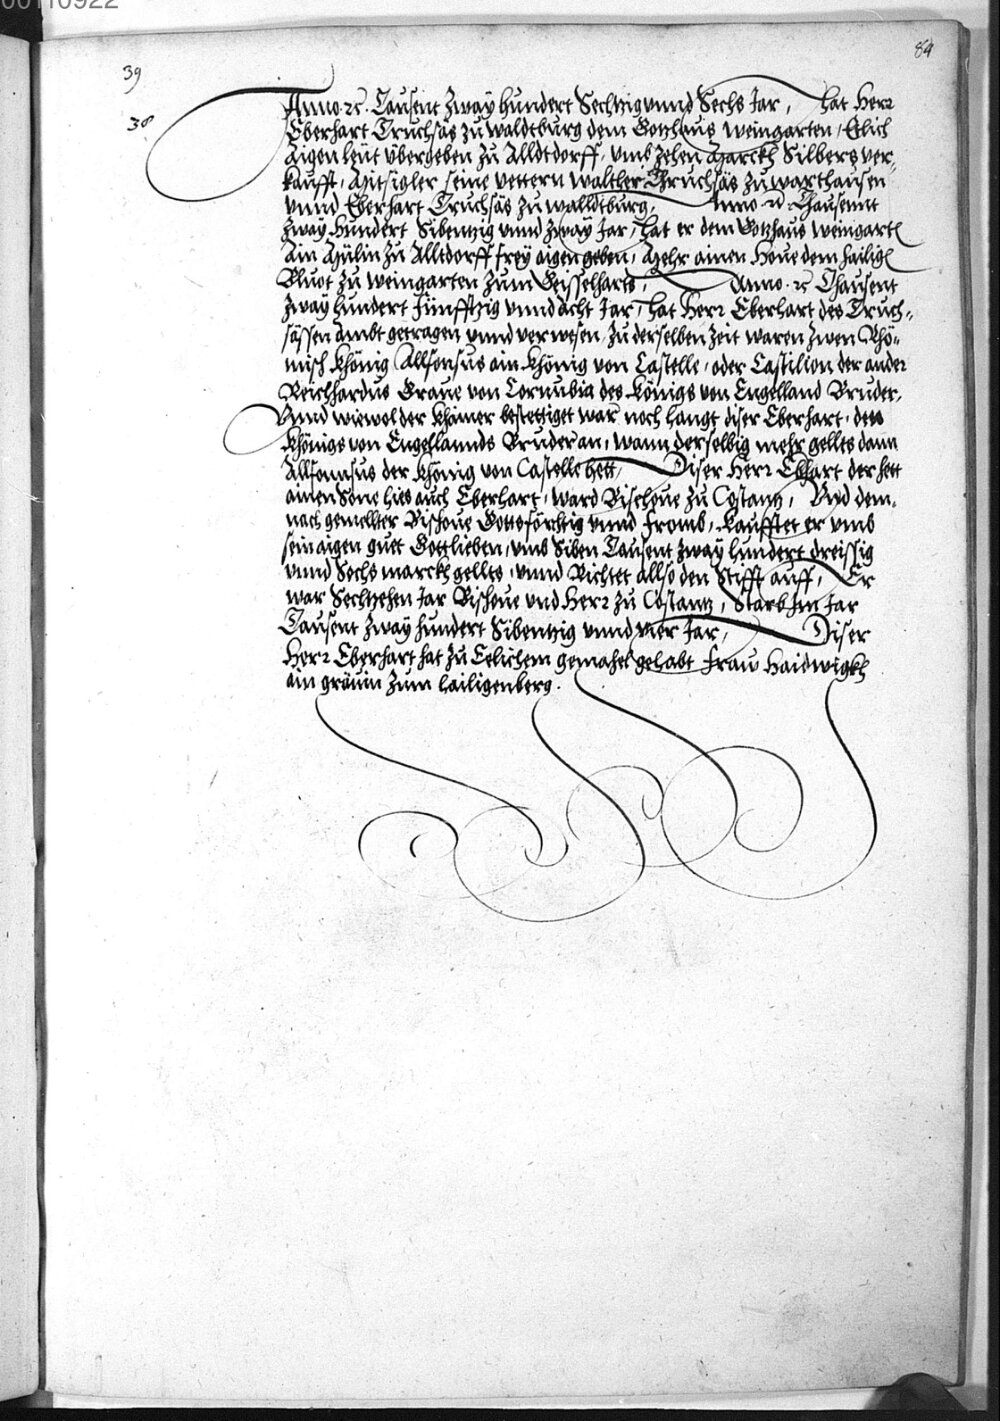 00110922
84
39
38
Anno ꝛc. Tausent Zway hundert Sechtzig vnnd Sechs Jar, hat Herr
Eberhart Truchsäs zu Waldtburg dem Gotzhaus Weingarten, Etlich
Aigen leüt übergeben zu Alldtdorff, vmb zehen Marckh Silbers ver„
kaufft, Mitsigler seine vettern Walther Truchsäs zu Warthausen
vnnd Eberhart Truchsäs zu Walldtburg. Anno ꝛc. Thausennt
Zway Hundert Sibentzig vnnd Zway Jar, hat er dem Gotzhaus Weingart
Ain Mülin zu Alltdorff frey aigen geben, Mehr ainen Houe dem hailig
Bluot zu Weingarten zum Geisselharts, Anno ꝛc Thausent
Zway hundert Fünfftzig vnnd acht Jar, hat Herr Eberhart des Truch„
sässen ambt getragen vnnd verwesen, Zu derselben Zeit waren zwen Rhö„
misch Khönig Allfonsus ain Khönig von Castelle, oder Castilion der ander
Reichhardus Graue von Cornubia des Königs von Engelland Bruder,
Vnnd wiewol der Khainer bestettiget war noch hangt diser Eberhart, des
Khönigs von Engellannds Bruder an, wann derselbig mehr gellts dann
Allfonnsus der Khönig von Castelle hett, Diser Herr Ebhart der hett
ainen Sone hies auch Eberhart, ward Bischoue zu Costantz, Vnd dem„
nach gemellter Bischoue Gottsförchtig vnnd fromb, Kaufftet er vmb
sein aigen guet Gottlieben, vmb Siben Tausent zway hundert dreissig
vnnd Sechs marckh gellts, vnnd Richtet allso den Stifft auff, Er
war Sechtzehen Jar Bischoue vnd Herr zu Costantz, Starb Im Jar
Tausent Zway hundert Sibentzig vnnd vier Jar, Diser
Herr Eberhart hat zu Eelichem gemahel gehabt Fraw Haidwigkh
ain gräuin zum hailigenberg.